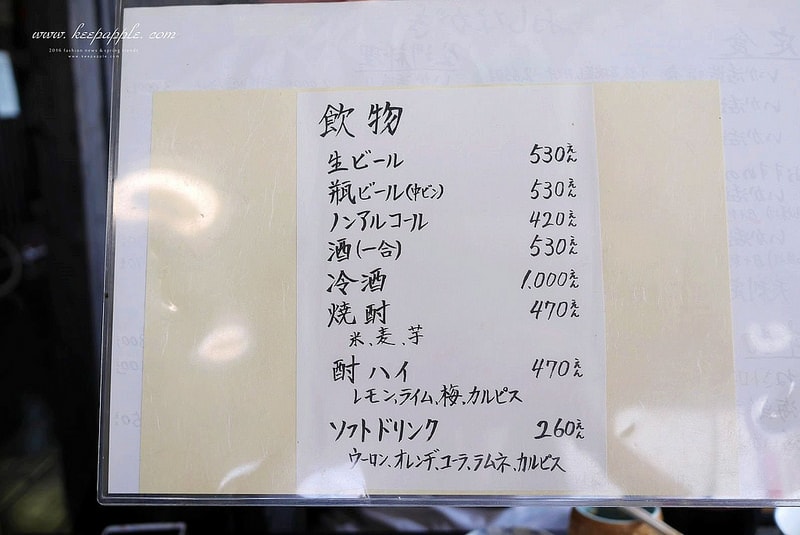 www. keepapple. com
飲物
生ビール 530えん
瓶ビール(中ビン) 530えん
ノンアルコール 420えん
酒(一合) 530えん
冷酒 1,000えん
焼酎 470えん
米、麦、芋
酎ハイ 470えん
レモン、ライム、梅、カルピス
ソフトドリンク 260えん
ウーロン、オレンヂ、コーラ、ラムネ、カルピス